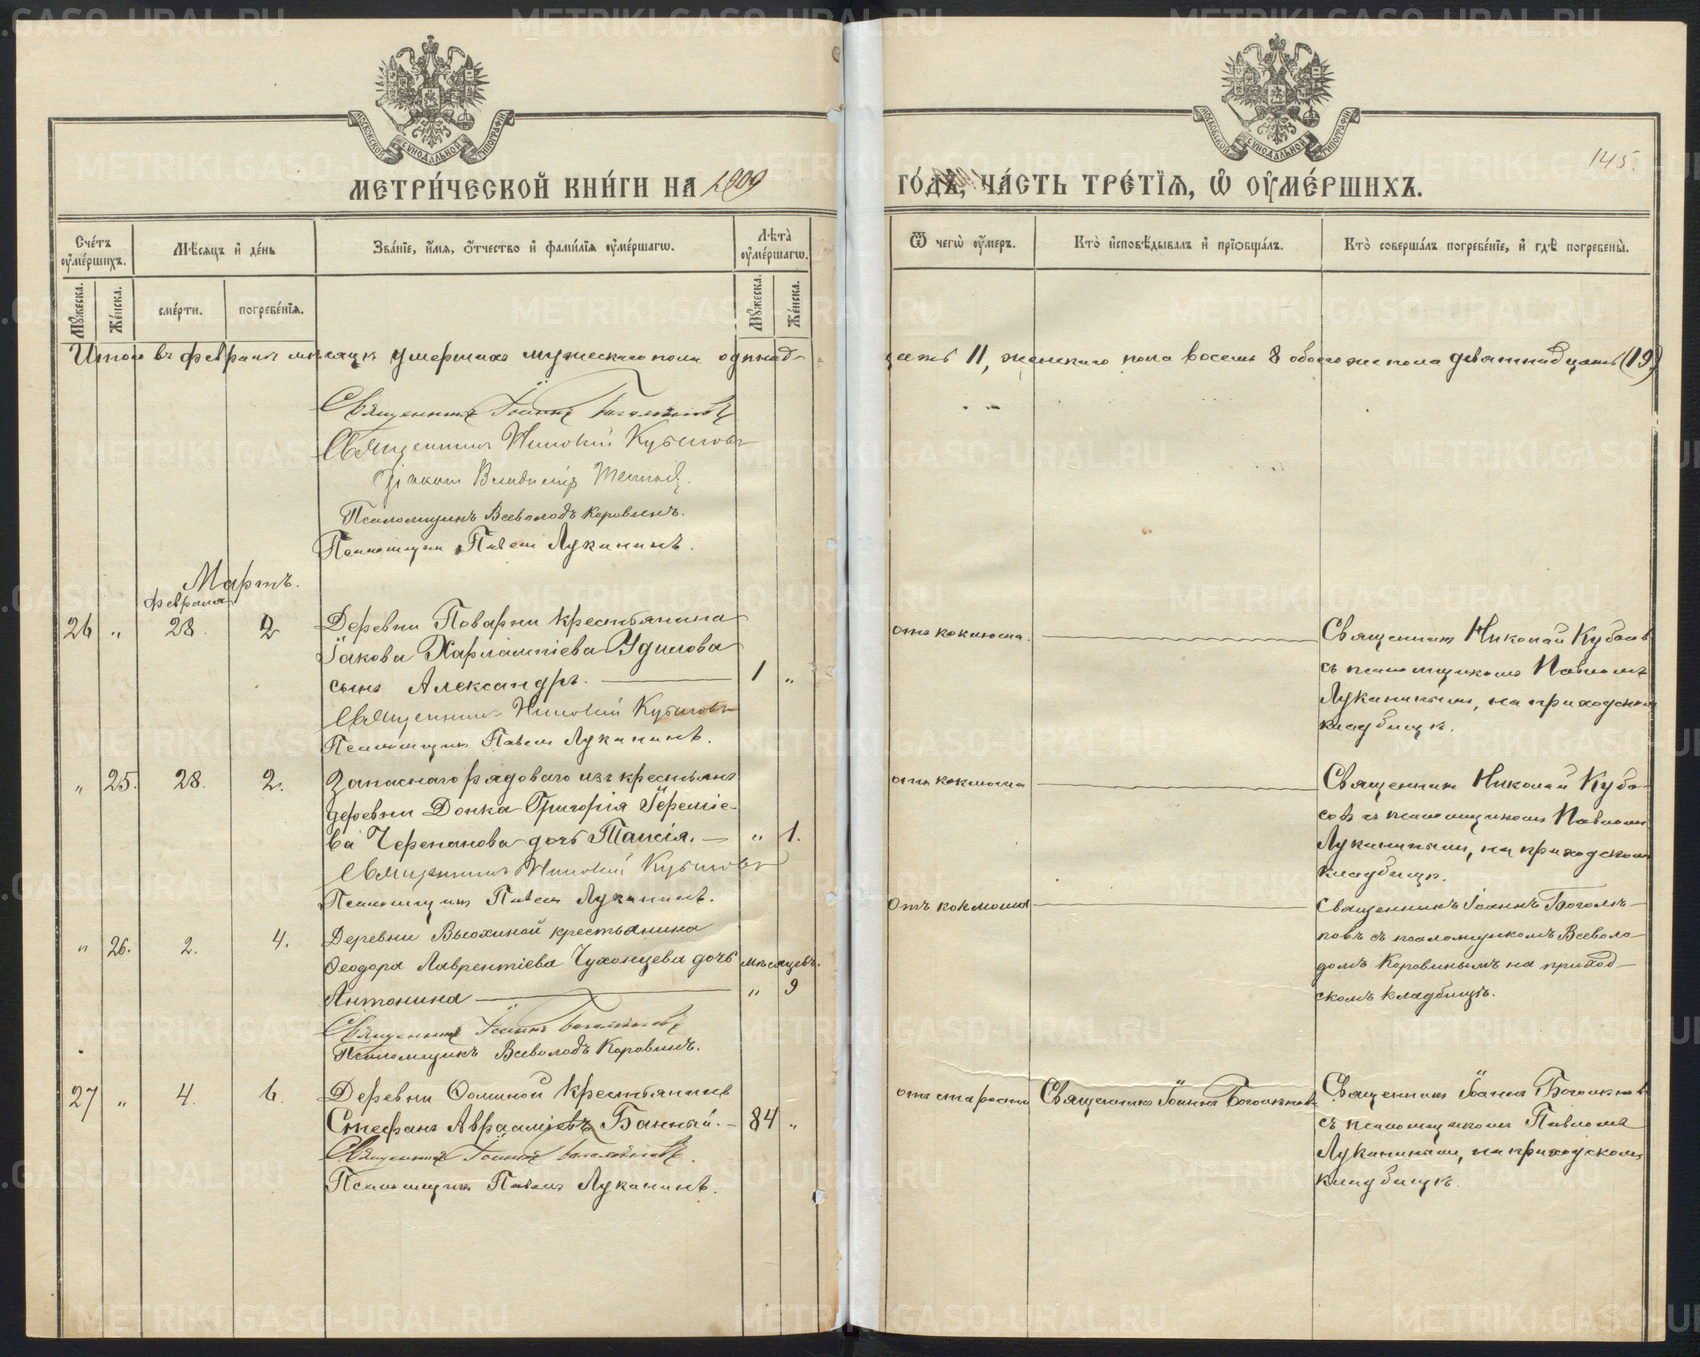 МЕТРИ́ЧЕСКОЙ КНИ́ГИ НА 1909
ГО́ДЪ, ЧА́СТЬ ТРЕ́ТІѦ, Ѡ҆ ОУ҆МЕ́РШИХЪ.
145.
МОСКОВСКОЙ СѴНОДАЛЬНОЙ ТИПОГРАФІИ
МОСКОВСКОЙ СѴНОДАЛЬНОЙ ТИПОГРАФІИ
Сче́тъ оу҆ме́ршихъ.
Мѣ́сяцъ и҆ де́нь
Зва́ніе, и҆́мя, ѻ҆́тчество и҆ фами́лія оу҆ме́ршагѡ.
Лѣта̀ оу҆ме́ршагѡ.
Ѿ чегѡ̀ оу҆́меръ.
Кто̀ и҆сповѣ́дывалъ и҆ прїѻбща́лъ.
Кто̀ соверша́лъ погребе́ніе, и҆ гдѣ̀ погребены̀.
Мꙋ́жеска.
Же́нска.
сме́рти.
погребе́нія.
Мꙋ́жеска.
Же́нска.
Итого въ февралѣ мѣсяцѣ умершихъ мужескаго пола одинад-
цать 11, женскаго пола восемь 8 обоего же пола девятнадцать (19)
Священникъ Іоаннъ Боголѣповъ
Священникъ Николай Кубасовъ
Діаконъ Владиміръ
Псаломщикъ Всеволодъ Коровинъ.
Псаломщикъ Павелъ Луканинъ.
Мартъ.
Февраля
26 „ 28. 2
Деревни Поварни крестьянина
Іакова Харлампіева Удилова
сынъ Александръ. 1 „
Священникъ Николай Кубасовъ
Псаломщикъ Павелъ Луканинъ.
отъ коклюша.
Священникъ Николай Кубасовъ
съ псаломщикомъ Павломъ
Луканинымъ, на приходскомъ
кладбищѣ.
„ 25. 28. 2.
Запаснаго рядоваго изъ крестьянъ
деревни Донка Григорія Іереміе-
ва Черепанова дочь Таисія. „ 1.
Священникъ Николай Кубасовъ
Псаломщикъ Павелъ Луканинъ.
отъ коклюша
Священникъ Николай Куба-
совъ съ псаломщикомъ Павломъ
Луканинымъ, на приходскомъ
кладбищѣ.
„ 26. 2. 4.
Деревни Вьюхиной крестьянина
Ѳеодора Лаврентіева Чухонцева дочь мѣсяцевъ.
Антонина „ 9
Священникъ Іоаннъ Боголѣповъ
Псаломщикъ Всеволодъ Коровинъ.
Отъ коклюша
Священникъ Іоаннъ Боголѣ-
повъ съ псаломщикомъ Всеволо-
домъ Коровинымъ на приход-
скомъ кладбищѣ.
27 „ 4. 6.
Деревни Ѳоминой крестьянинъ
Стефанъ Авраамієвъ Банный. 84 „
Священникъ Іоаннъ Боголѣповъ.
Псаломщикъ Павелъ Луканинъ.
отъ старости
Священникъ Іоаннъ Боголѣповъ
Священникъ Іоаннъ Боголѣповъ
съ псаломщикомъ Павломъ
Луканинымъ, на приходскомъ
кладбищѣ.
METRIKI.GASO-URAL.RU